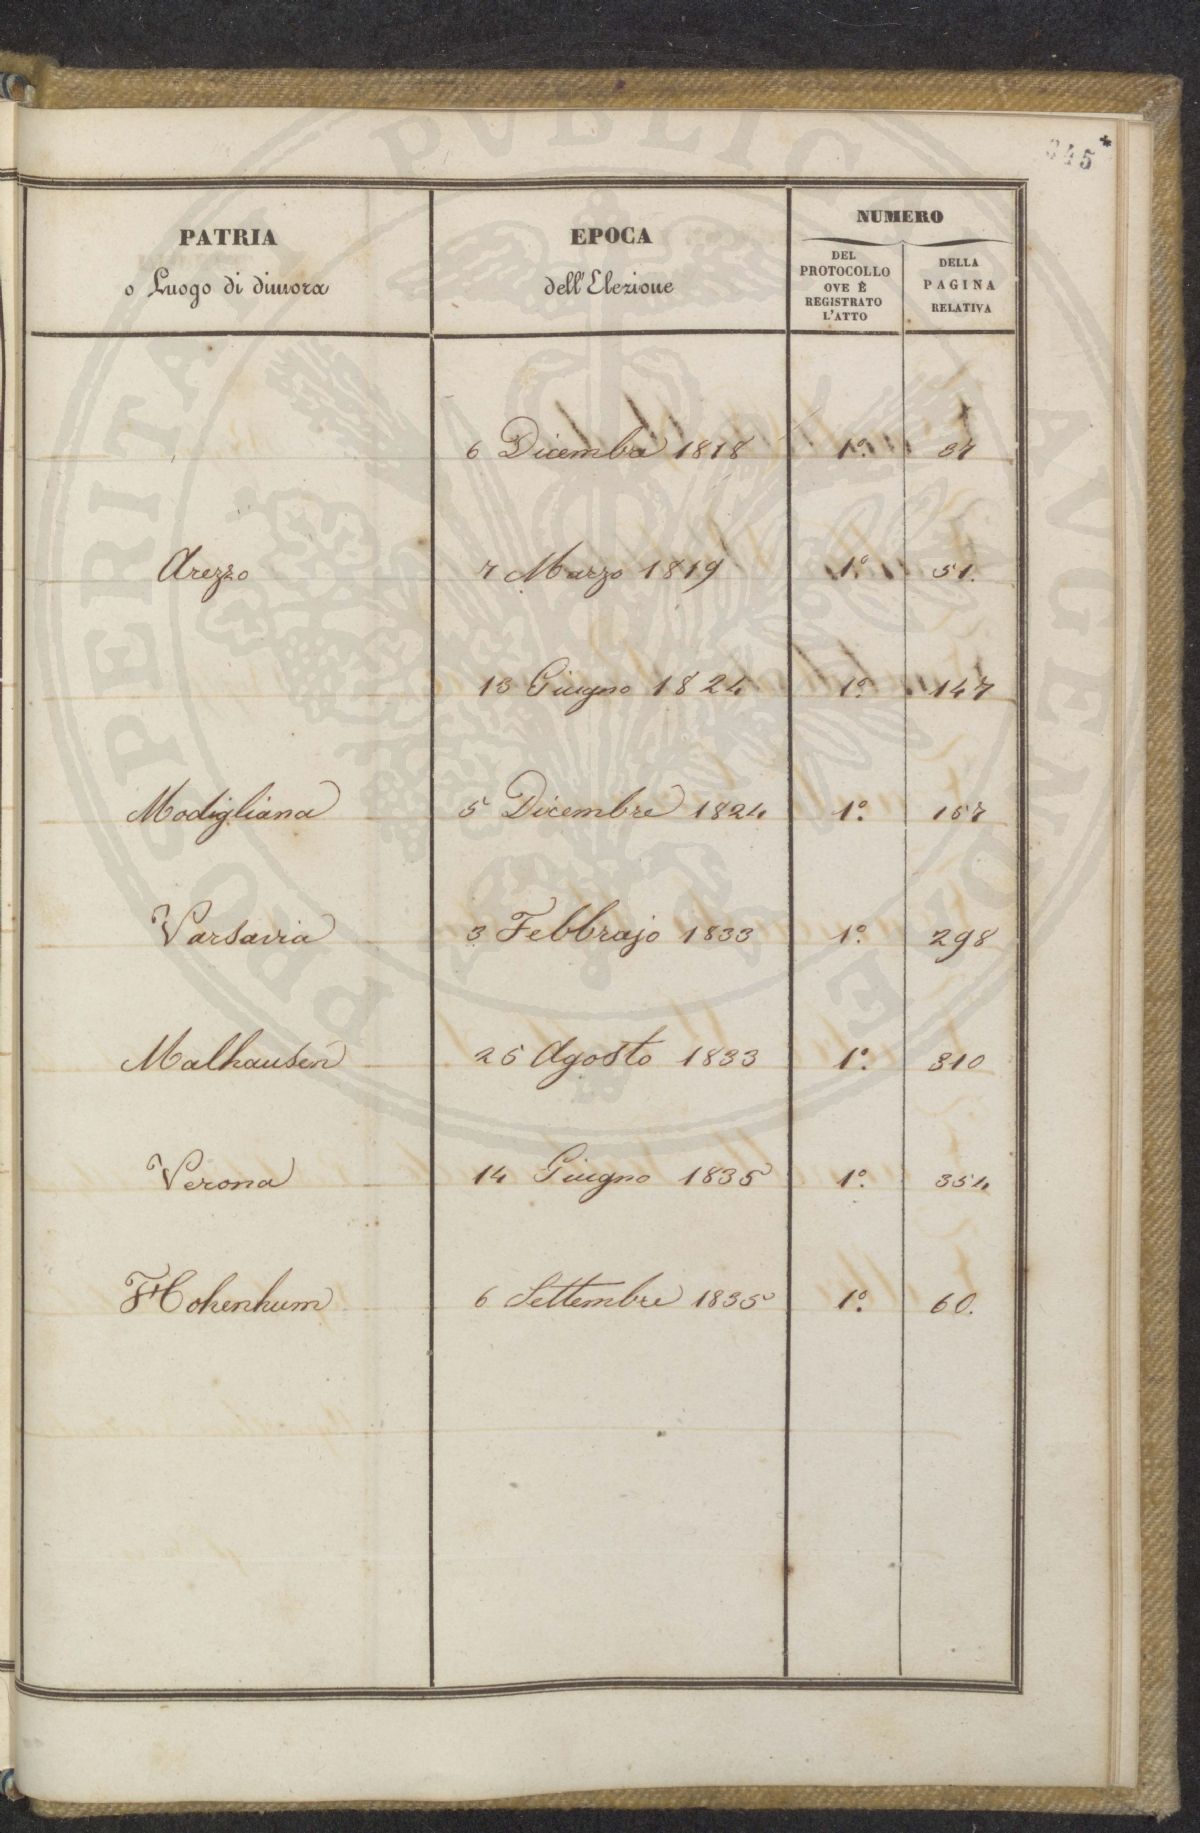 345*
PATRIA
o Luogo di dimora
EPOCA
dell'Elezione
NUMERO
DEL
PROTOCOLLO
OVE È
REGISTRATO
L'ATTO
DELLA
PAGINA
RELATIVA
6 Dicembre 1818 1.º 37
Arezzo 7 Marzo 1819 1.º 51.
13 Giugno 1824 1.º 147
Modigliana 5 Dicembre 1824 1.º 157
Varsavia 3 Febbrajo 1833 1.º 298
Malhausen 25 Agosto 1833 1.º 310
Verona 14 Giugno 1835 1.º 354
Hohenhum 6 Settembre 1835 1.º 60.
PROSPERITATI PVBLICAE AVGENDAE